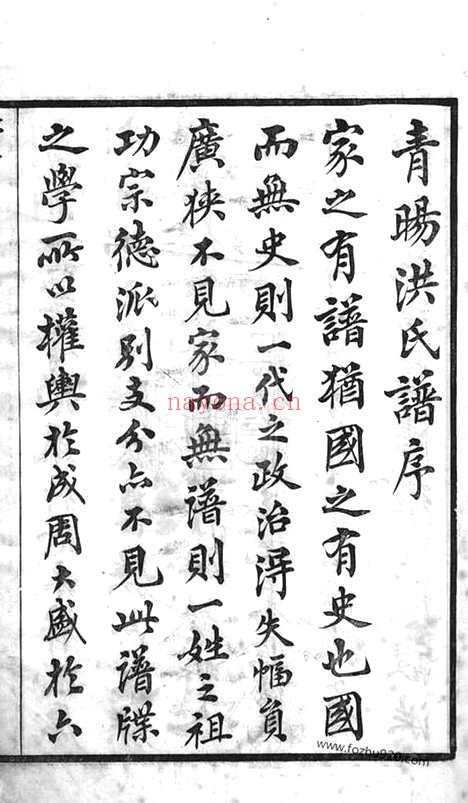 青暘洪氏譜序
家之有譜猶國之有史也國
而無史則一代之政治得失幅員
廣狹不見家而無譜則一姓之祖
功宗德派別支分亦不見此譜牒
之學所以權輿於成周大盛於六
nayona.cn
www.fozhu920.com